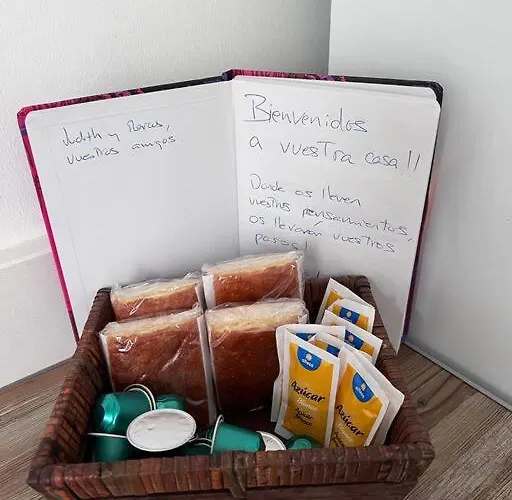 Judith y Marcos,
vuestros amigos
Bienvenidos
a vuesTra casa!!
Donde os lleven
vuestros pensamientos,
os llevarán vuestros
pasos!
Azúcar
Blanco
Azúcar
Azúcar